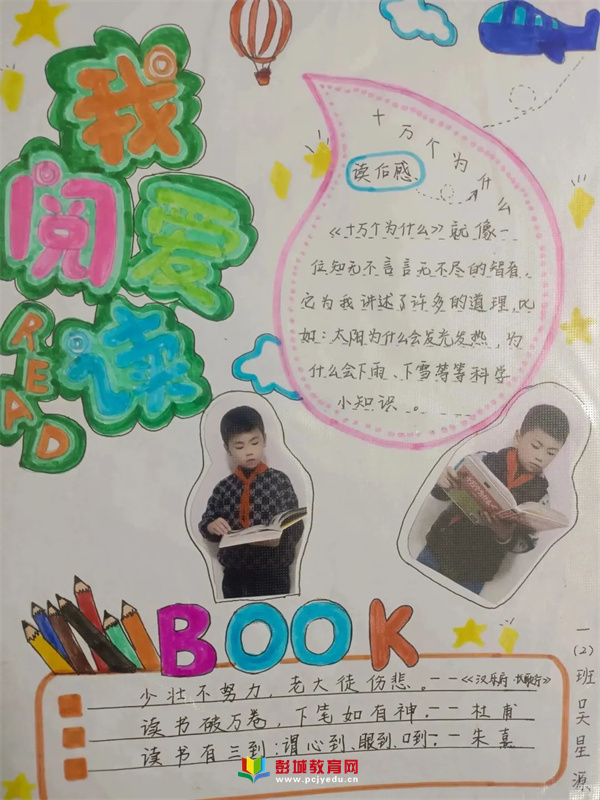 我
阅
爱
读
READ
十万个为什么
读后感
《十万个为什么》就像一
位知无不言言无不尽的智者，
它为我讲述了许多的道理，比
如：太阳为什么会发光发热，为
什么会下雨、下雪等等科学
小知识。
BOOK
少壮不努力，老大徒伤悲。——《汉乐府·长歌行》
读书破万卷，下笔如有神。——杜甫
读书有三到：谓心到、眼到、口到。——朱熹
一(2)班吴星源
彭城教育网
www.pcjyedu.cn